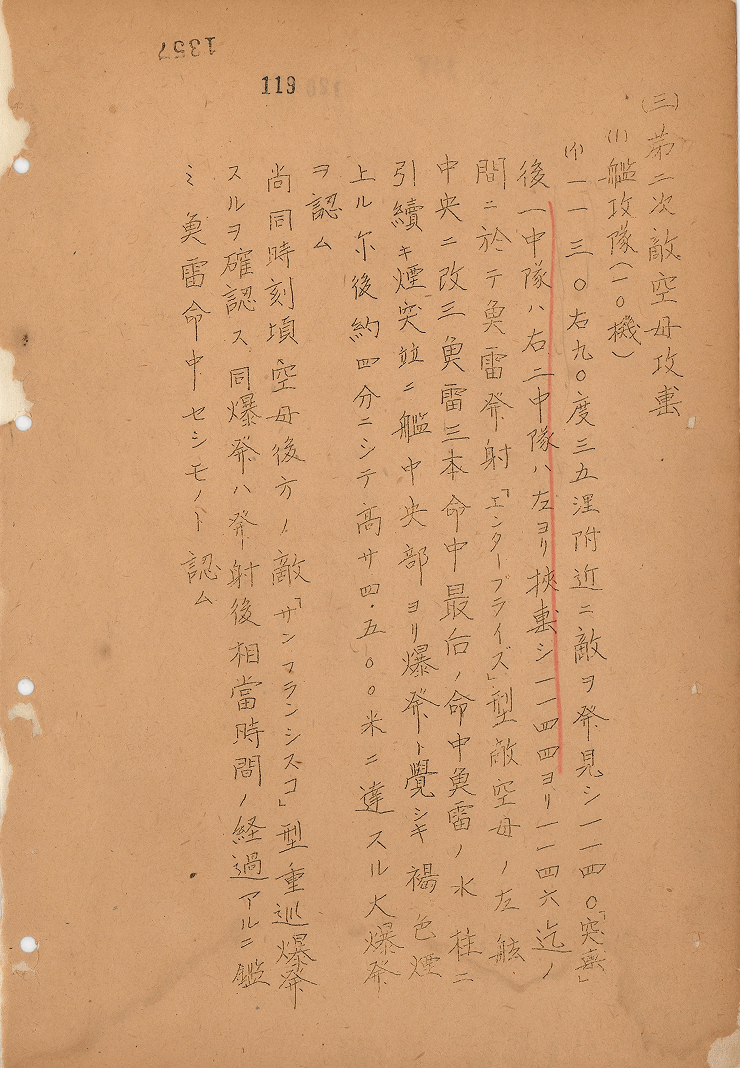 1357
119
(三)第二次敵空母攻撃
(1)艦攻隊(一〇機)
(イ)一一三〇右九〇度三五浬附近ニ敵ヲ発見シ一一四〇「突撃」
後一中隊ハ右二中隊ハ左ヨリ挾撃シ一一四四ヨリ一一四六迄ノ
間ニ於テ魚雷発射「エンタープライズ」型敵空母ノ左舷
中央ニ改三魚雷三本命中最后ノ命中魚雷ノ水柱ニ
引續キ煙突竝ニ艦中央部ヨリ爆発ト覺シキ褐色煙
上ル尓後約四分ニシテ高サ四・五〇〇米ニ達スル大爆発
ヲ認ム
尚同時刻頃空母後方ノ敵「サンフランシスコ」型重巡爆発
スルヲ確認ス同爆発ハ発射後相當時間ノ経過アルニ鑑
ミ魚雷命中セシモノト認ム